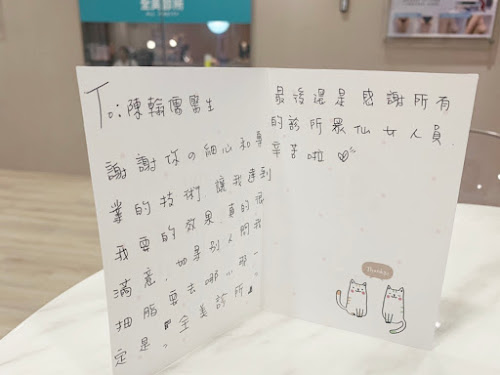 全美診所
To:陳翰儒醫生
謝謝你の細心和專
業的技術,讓我達到
我要的效果,真的很
滿意,如果別人問我
抽脂要去哪…那一
定是『全美診所』
。
最後還是感謝所有
的診所眾仙女人員.
辛苦啦♡
Thanks